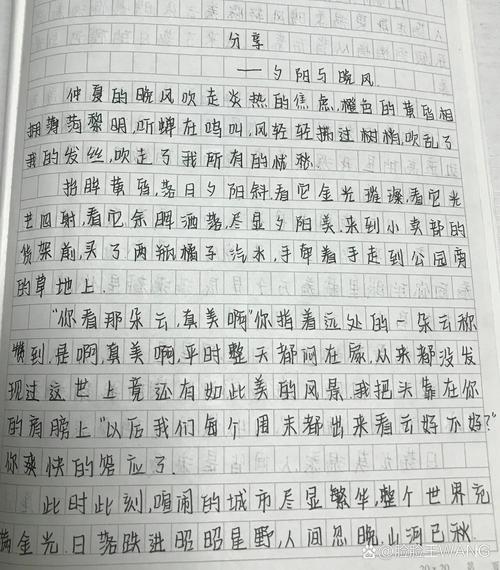 分享
——夕阳与晚风
仲夏的晚风吹走炎热的焦虑,橙色的黄昏相
拥薄荷黎明,听蝉在鸣叫,风轻轻拂过树梢,吹乱了
我的发丝,吹走了我所有的忧愁.
指眸黄昏,落日夕阳斜,看它金光璀璨看它光
芒四射,看它余晖洒落,尽显夕阳美.来到小卖部的
货架前,买了两瓶橘子汽水,手牵着手走到公园旁
的草地上.
"你看那朵云,真美啊"你指着远处的一朵云称
赞到,是啊,真美啊,平时整天都闷在家,从来都没发
现过这世上竟还有如此美的风景,我把头靠在你
的肩膀上"以后我们每个周末都出来看云好不好?"
你爽快的答应了.
此时此刻,喧闹的城市尽显繁华,整个世界充
满金光.日落跌进昭昭星野,人间忽晚,山河已秋.
20×20
@脸脸王WANG